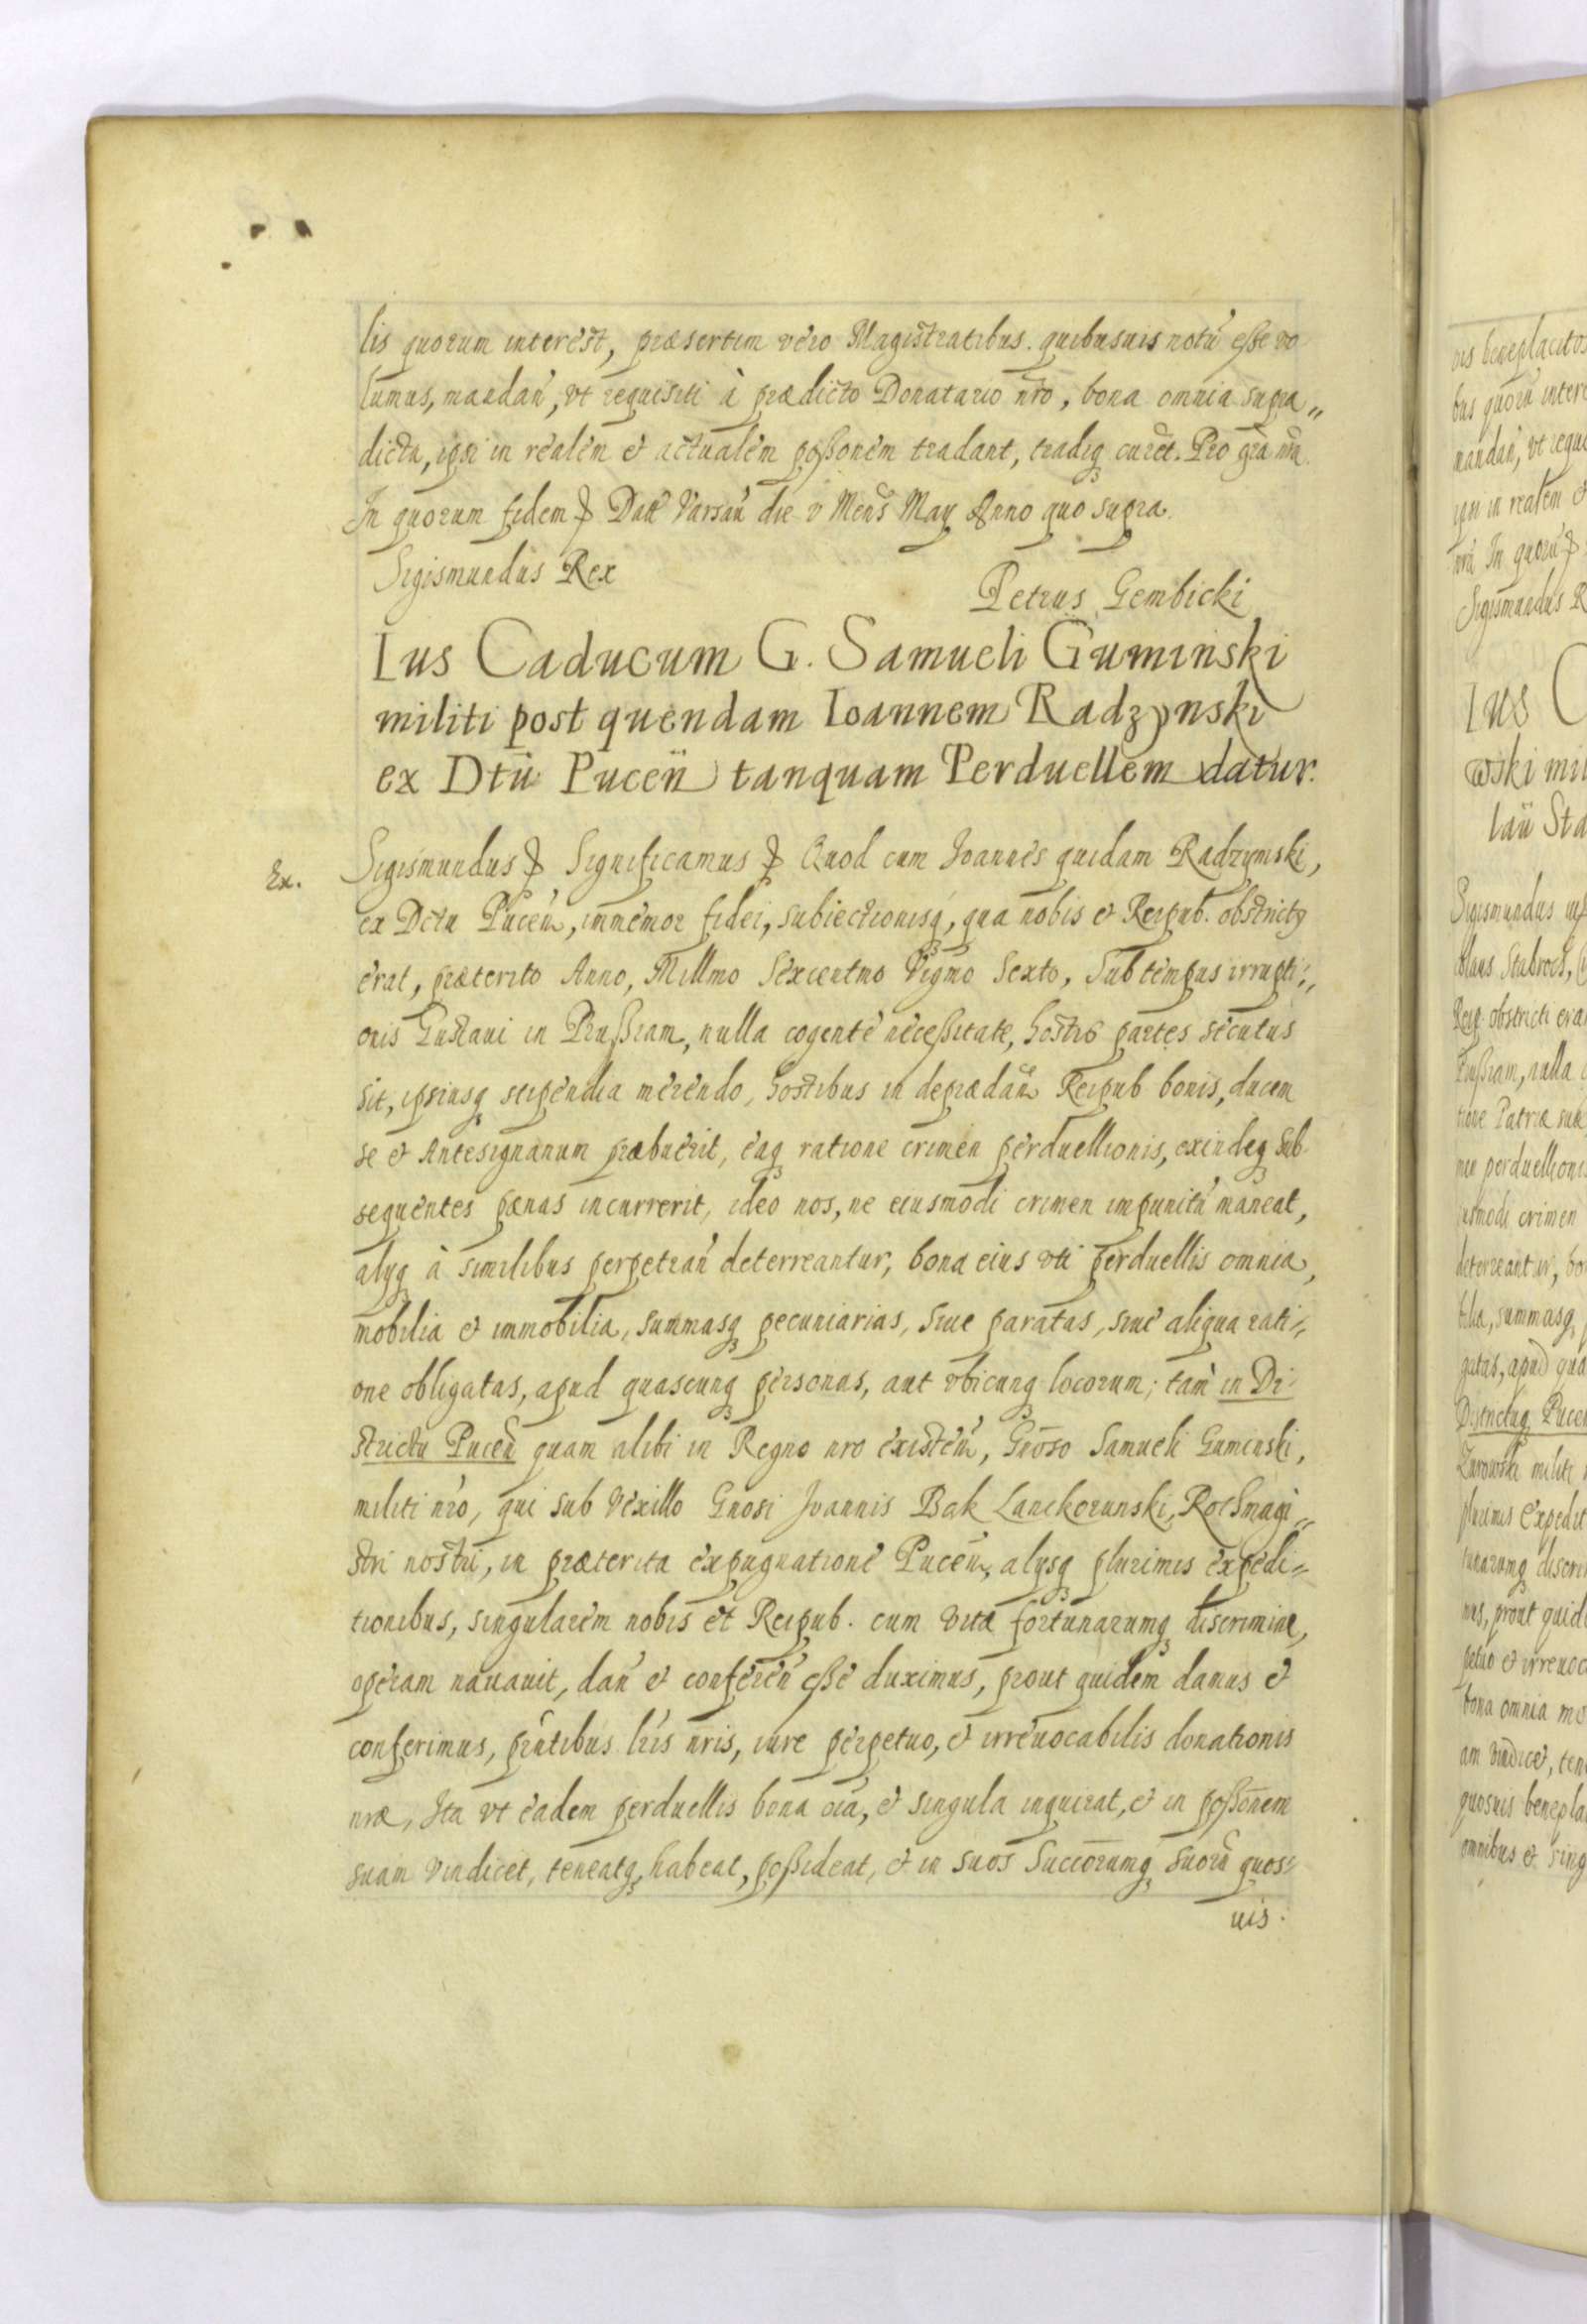 lis quorum interest, præsertim vero Magistratibus quibusuis notũ esse vo
lumus, mandañ, vt requisiti à prædicto Donatario nr̃o, bona omnia supra„
dicta, ipsi in realem et actualem poßonem tradant, tradiq curẽt. Pro gr̃a nr̃a.
In quorum fidem ꝑ Datt Varsaũ die v Meñs Maÿ Anno quo supra.
Sigismundus Rex
Petrus Gembicki
Ius Caducum G. Samueli Guminski
militi post quendam Ioannem Radzynski
ex Dtũ Puceñ tanquam Perduellem datur.
Ex. Sigismundus ꝑ Significamus ꝑ Quod cum Joannes quidam Radzynski,
ex Dctu Puceñ, immemor fidei, subiectionisq̃, qua nobis et Reipub. obstrictꝰ
erat, præterito Anno, Millmo Sexcentmo Vigmo Sexto, Sub tempus irrupti„
onis Gustaui in Prußiam, nulla cogente neceßitate, hostis partes secutus
sit, ipsiusq stipendia merendo, hostibus in deprædañ Reipub bonis, ducem
se et Antesignanum præbuerit, eaq ratione crimen perduellionis, exindeq Sub-
sequentes pænas incurrerit, ideo nos, ne eiusmodi crimen impunitũ maneat,
alyq à similibus perpetrañ deterreantur, bona eius vti perduellis omnia,
mobilia et immobilia, summasq pecuniarias, siue paratas, siue aliqua rati„
one obligatas, apud quascunq personas, aut vbicunq locorum; tam in Di-
strictu Puceñ quam alibi in Regno nro existeñ, Gñoso Samueli Guminski,
militi nr̃o, qui sub Vexillo Gnosi Joannis Bak Lanckorunski, Rothmagi„
stri nostri, in præterita expugnatione Puceñ, alysq plurimis expedi„
tionibus, singularem nobis et Reipub. cum vitæ fortunarumq discrimine,
operam nauauit, dañ et confereñ esse duximus, prout quidem damus et
conferimus, pñtibus lr̃is nris, iure perpetuo, et irreuocabilis donationis
nræ, Ita vt eadem perduellis bona oĩa, et singula inquirat, et in poßonem
suam vindicet, teneatq, habeat, poßideat, et in suos Succorumq suorũ quos-
uis.